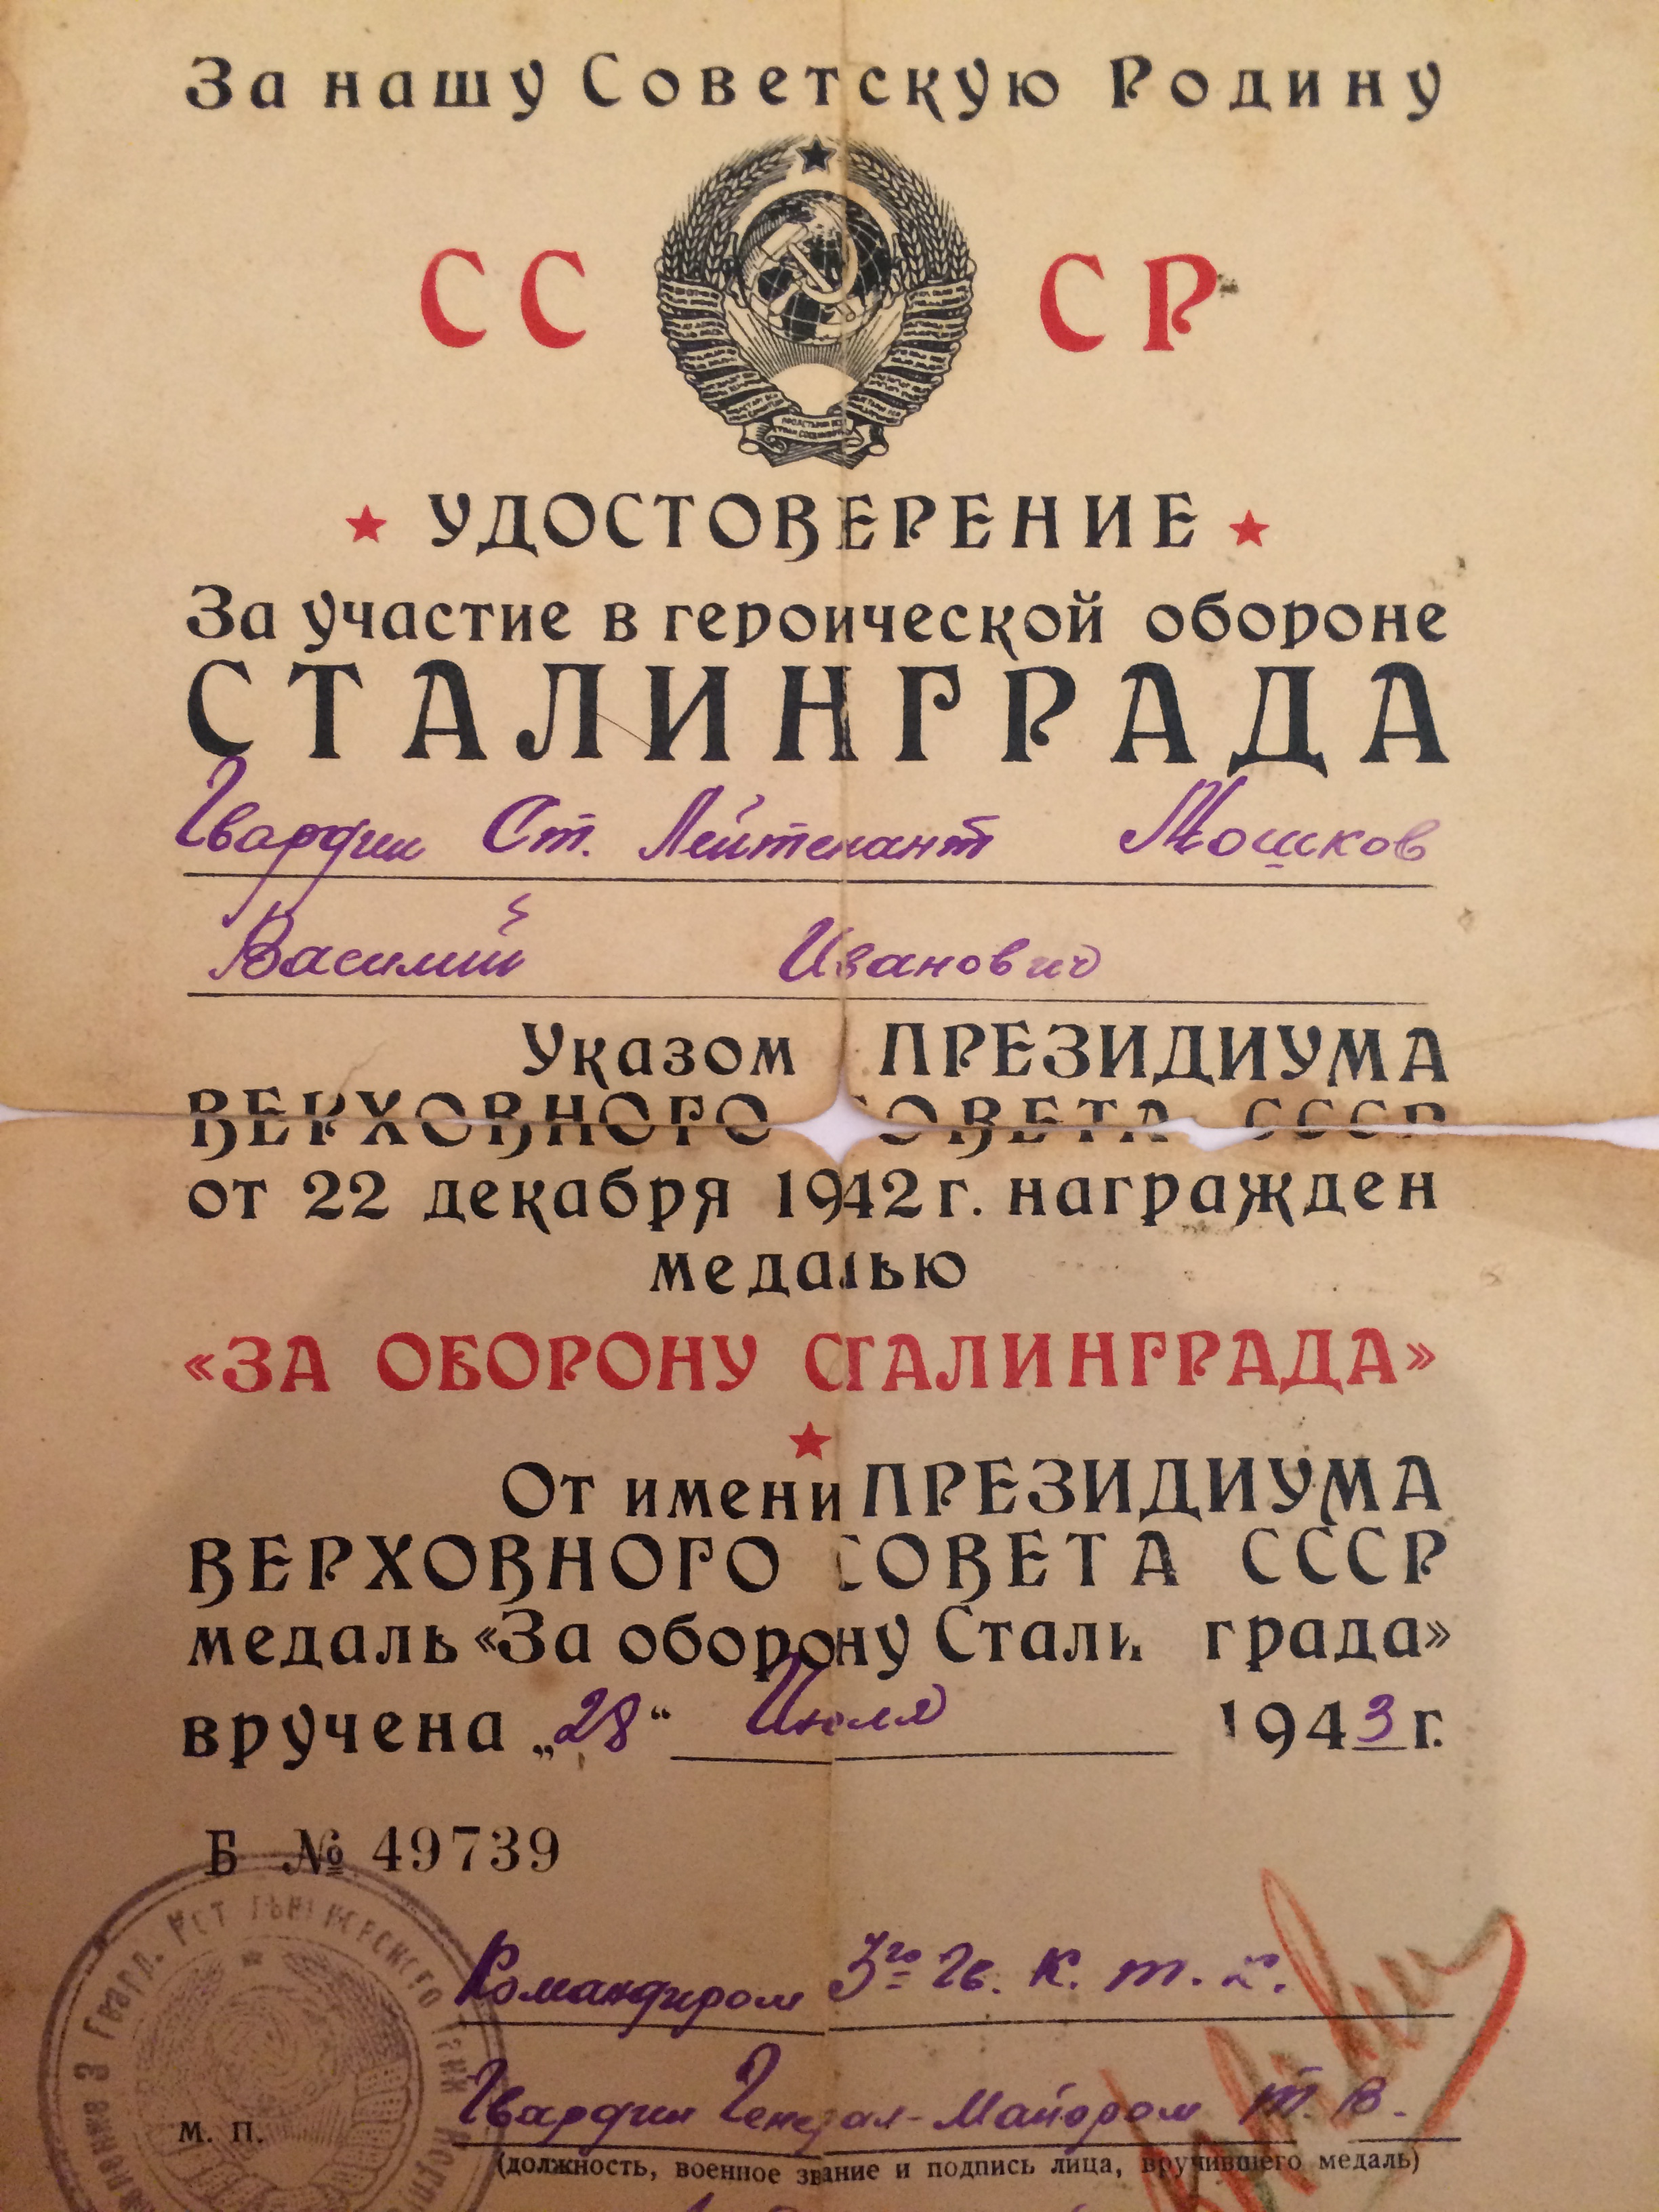 За нашу Советскую Родину
СССР
УДОСТОВЕРЕНИЕ
За участие в героической обороне
СТАЛИНГРАДА
Гвардии Ст. Лейтенант Мошков
Василий Иванович
Указом ПРЕЗИДИУМА
ВЕРХОВНОГО СОВЕТА СССР
от 22 декабря 1942 г. награжден
медалью
«ЗА ОБОРОНУ СТАЛИНГРАДА»
От имени ПРЕЗИДИУМА
ВЕРХОВНОГО СОВЕТА СССР
медаль «За оборону Сталинграда»
вручена „28“ Июля 1943 г.
Б № 49739
Командиром 3го Гв. К. т. к.
Гвардии Генерал-Майором т. в.
М. П.
(должность, военное звание и подпись лица, вручившего медаль)